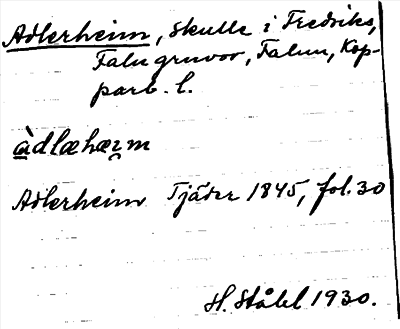 Adlerheim, Skulle i Fredriks,
Falu gruvor, Falun, Kop-
parb. l.
àdlæhæɪm
Adlerheim Tjäder 1845, fol. 30
H. Ståhl 1930.